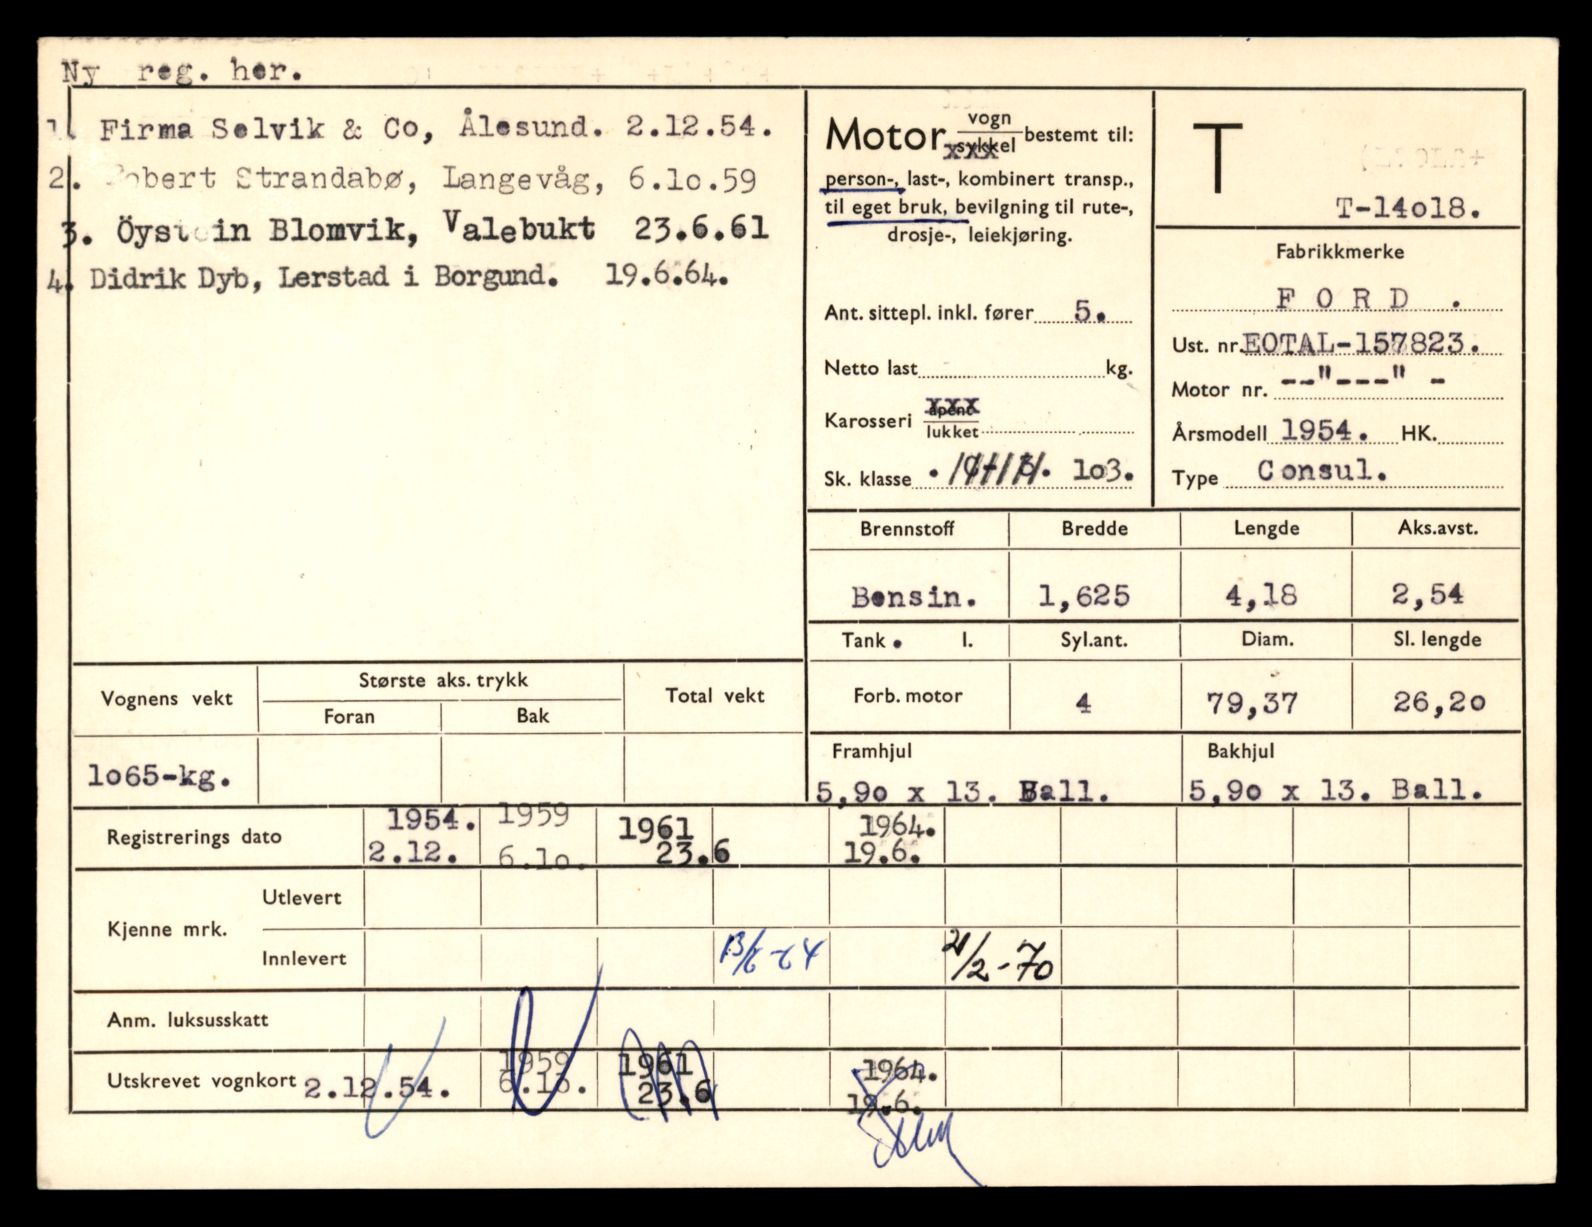 Ny reg. her.
1. Firma Selvik & Co, Ålesund. 2.12.54.
2. Robert Strandabø, Langevåg, 6.10.59
3. Öystein Blomvik, Valebukt 23.6.61
4. Didrik Dyb, Lerstad i Borgund. 19.6.64.
Motor vogn / sykkel bestemt til:
xxx
person-, last-, kombinert transp.,
til eget bruk, bevilgning til rute-,
drosje-, leiekjøring.
Ant. sittepl. inkl. fører 5.
Netto last kg.
Karosseri åpent / lukket
xxx
Sk. klasse 103.
T
T-14018.
Fabrikkmerke
FORD .
Ust. nr. EOTAL-157823.
Motor nr. --"---" -
Årsmodell 1954. HK.
Type Consul.
Brennstoff Bredde Lengde Aks.avst.
Bensin. 1,625 4,18 2,54
Tank . l. Syl.ant. Diam. Sl. lengde
Forb. motor 4 79,37 26,20
Framhjul Bakhjul
5,90 x 13. Ball. 5,90 x 13. Ball.
Vognens vekt Største aks. trykk Total vekt
Foran Bak
1065-kg.
Registrerings dato 1954. 1959 1961 1964.
2.12. 6.10. 23.6 19.6.
Kjenne mrk.
Utlevert
Innlevert 13/6-64 21/2-70
Anm. luksusskatt
Utskrevet vognkort 2.12.54. 1959 1961 1964.
6.10. 23.6 19.6.